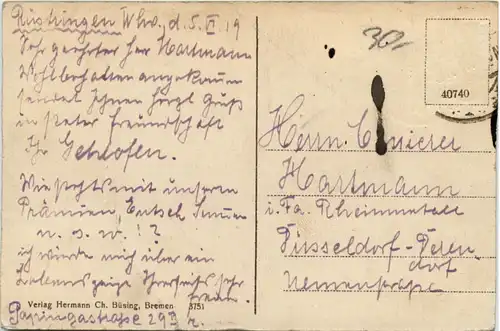 Rüstringen Whv., d. 5. VI 19
Sehr geehrter Herr Hartmann
Wohlbehalten angekommen
sendet Ihnen herzl. Gruß
in steter Freundschaft
Ihr Gehofen.
Wie steht's mit unseren
Prämien,
u. s. w. ! ?
ich würde mich über ein
Lebenszeichen Ihrerseits sehr
freuen.
Verlag Hermann Ch. Büsing, Bremen 3751
29
30/-
40740
Herrn
Hartmann
i. Fa. Rheinmetall
Düsseldorf-Deren
dorf